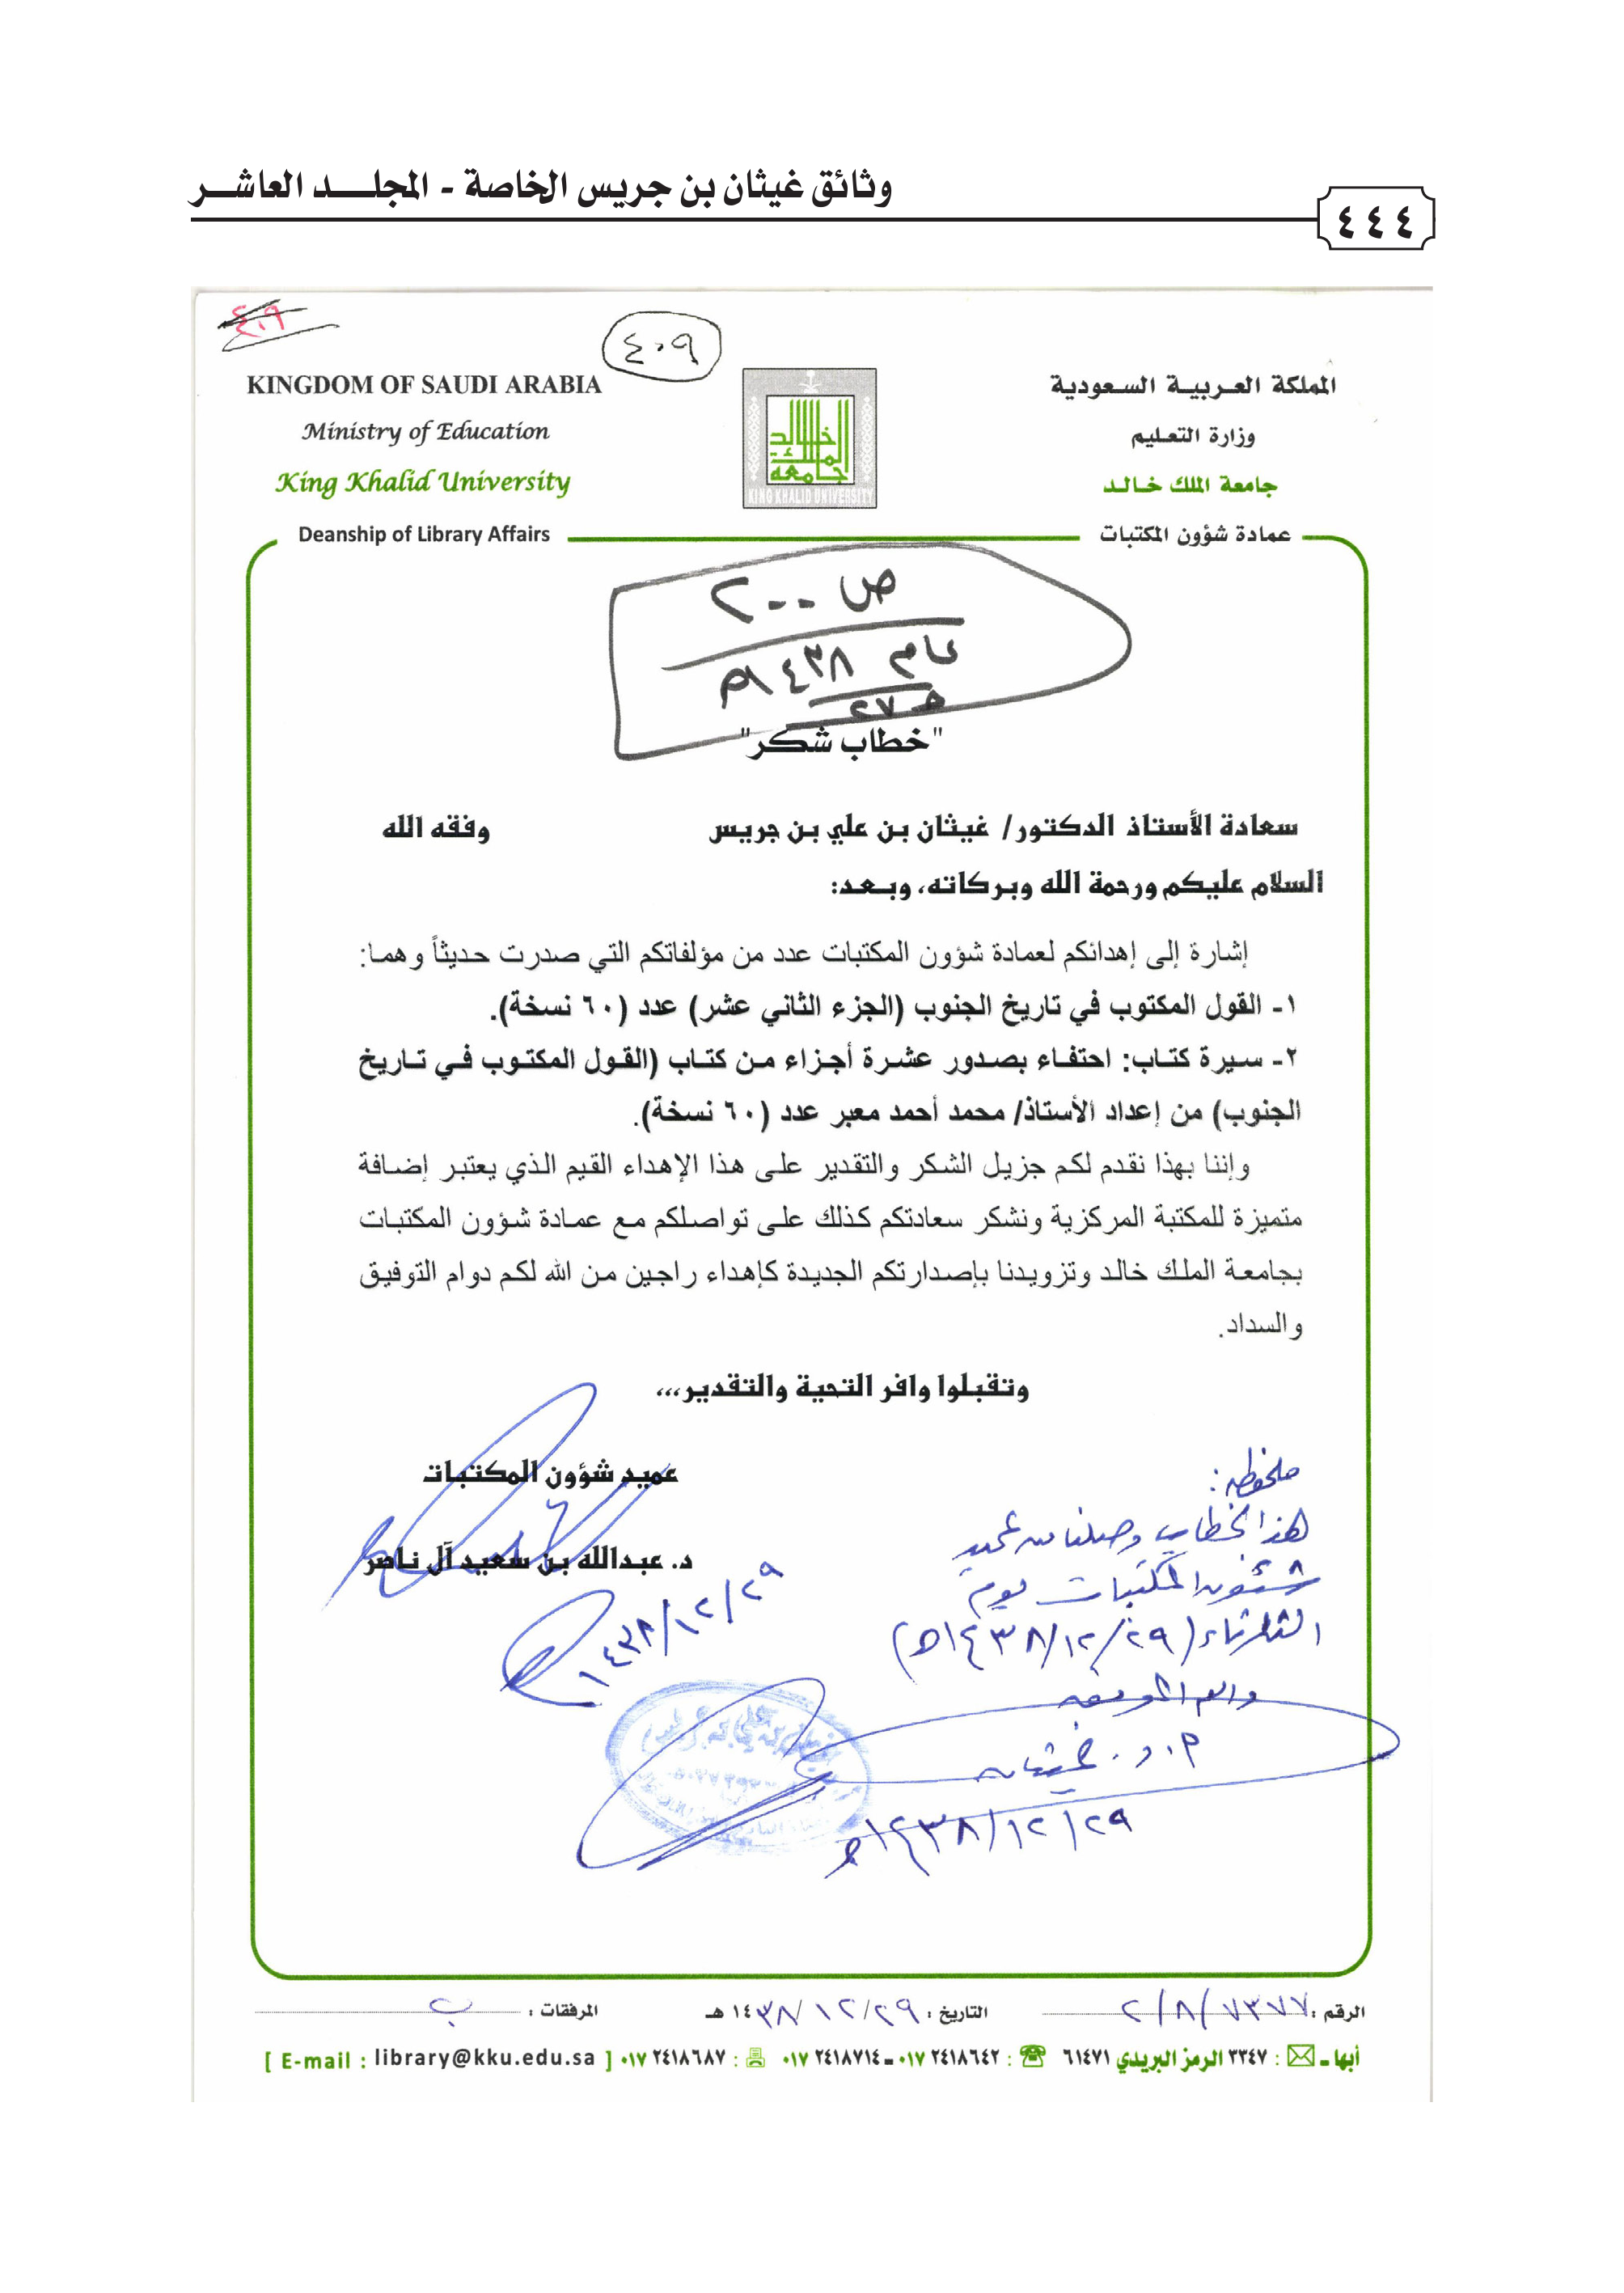 وثائق غيثان بن جريس الخاصة - المجلــد العاشــر
٤٤٤
٤٠٩
٤٠٩
KINGDOM OF SAUDI ARABIA
Ministry of Education
King Khalid University
Deanship of Library Affairs
جامعة الملك خالد
KING KHALID UNIVERSITY
المملكة العربية السعودية
وزارة التعليم
جامعة الملك خالد
عمادة شؤون المكتبات
ص ٢٠٠
عام ١٤٣٨هـ
"خطاب شكر"
سعادة الأستاذ الدكتور/ غيثان بن علي بن جريس وفقه الله
السلام عليكم ورحمة الله وبركاته، وبعد:
إشارة إلى إهدائكم لعمادة شؤون المكتبات عدد من مؤلفاتكم التي صدرت حديثاً وهما:
١- القول المكتوب في تاريخ الجنوب (الجزء الثاني عشر) عدد (٦٠ نسخة).
٢- سيرة كتاب: احتفاء بصدور عشرة أجزاء من كتاب (القول المكتوب في تاريخ
الجنوب) من إعداد الأستاذ/ محمد أحمد معبر عدد (٦٠ نسخة).
وإننا بهذا نقدم لكم جزيل الشكر والتقدير على هذا الإهداء القيم الذي يعتبر إضافة
متميزة للمكتبة المركزية ونشكر سعادتكم كذلك على تواصلكم مع عمادة شؤون المكتبات
بجامعة الملك خالد وتزويدنا بإصدارتكم الجديدة كإهداء راجين من الله لكم دوام التوفيق
والسداد.
وتقبلوا وافر التحية والتقدير،،،
عميد شؤون المكتبات
د. عبدالله بن سعيد آل ناصر
١٤٣٨/١٢/٢٩
ملحوظة:
هذا الخطاب وصلنا من عميد
شئون المكتبات يوم
الثلاثاء (١٤٣٨/١٢/٢٩هـ)
والله الموفق
أ.د. غيثان
١٤٣٨/١٢/٢٩هـ
الرقم : ٢/٨/٧٣٧٧ التاريخ : ١٤٣٨/١٢/٢٩ هـ المرفقات :
أبها ـ : ٣٣٤٧ الرمز البريدي ٦١٤٧١ : ٠١٧ ٢٤١٨٦٤٢ ـ ٠١٧ ٢٤١٨٧١٤ : ٠١٧ ٢٤١٨٦٨٧ [ E-mail : library@kku.edu.sa ]